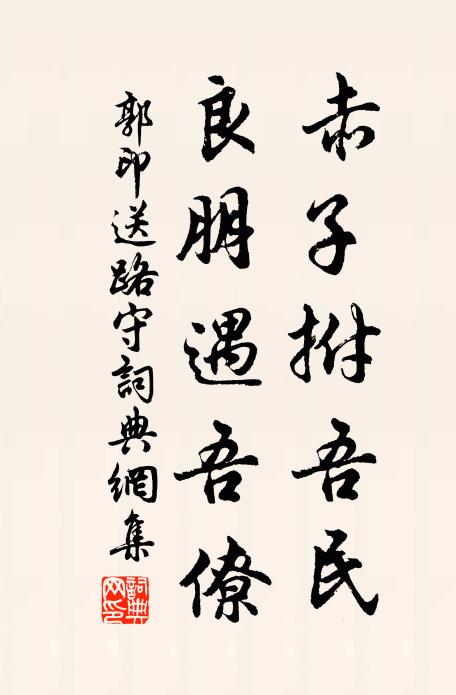 赤子拊吾民
良朋遇吾僚
郭印送路守詞典網集
詞典网印